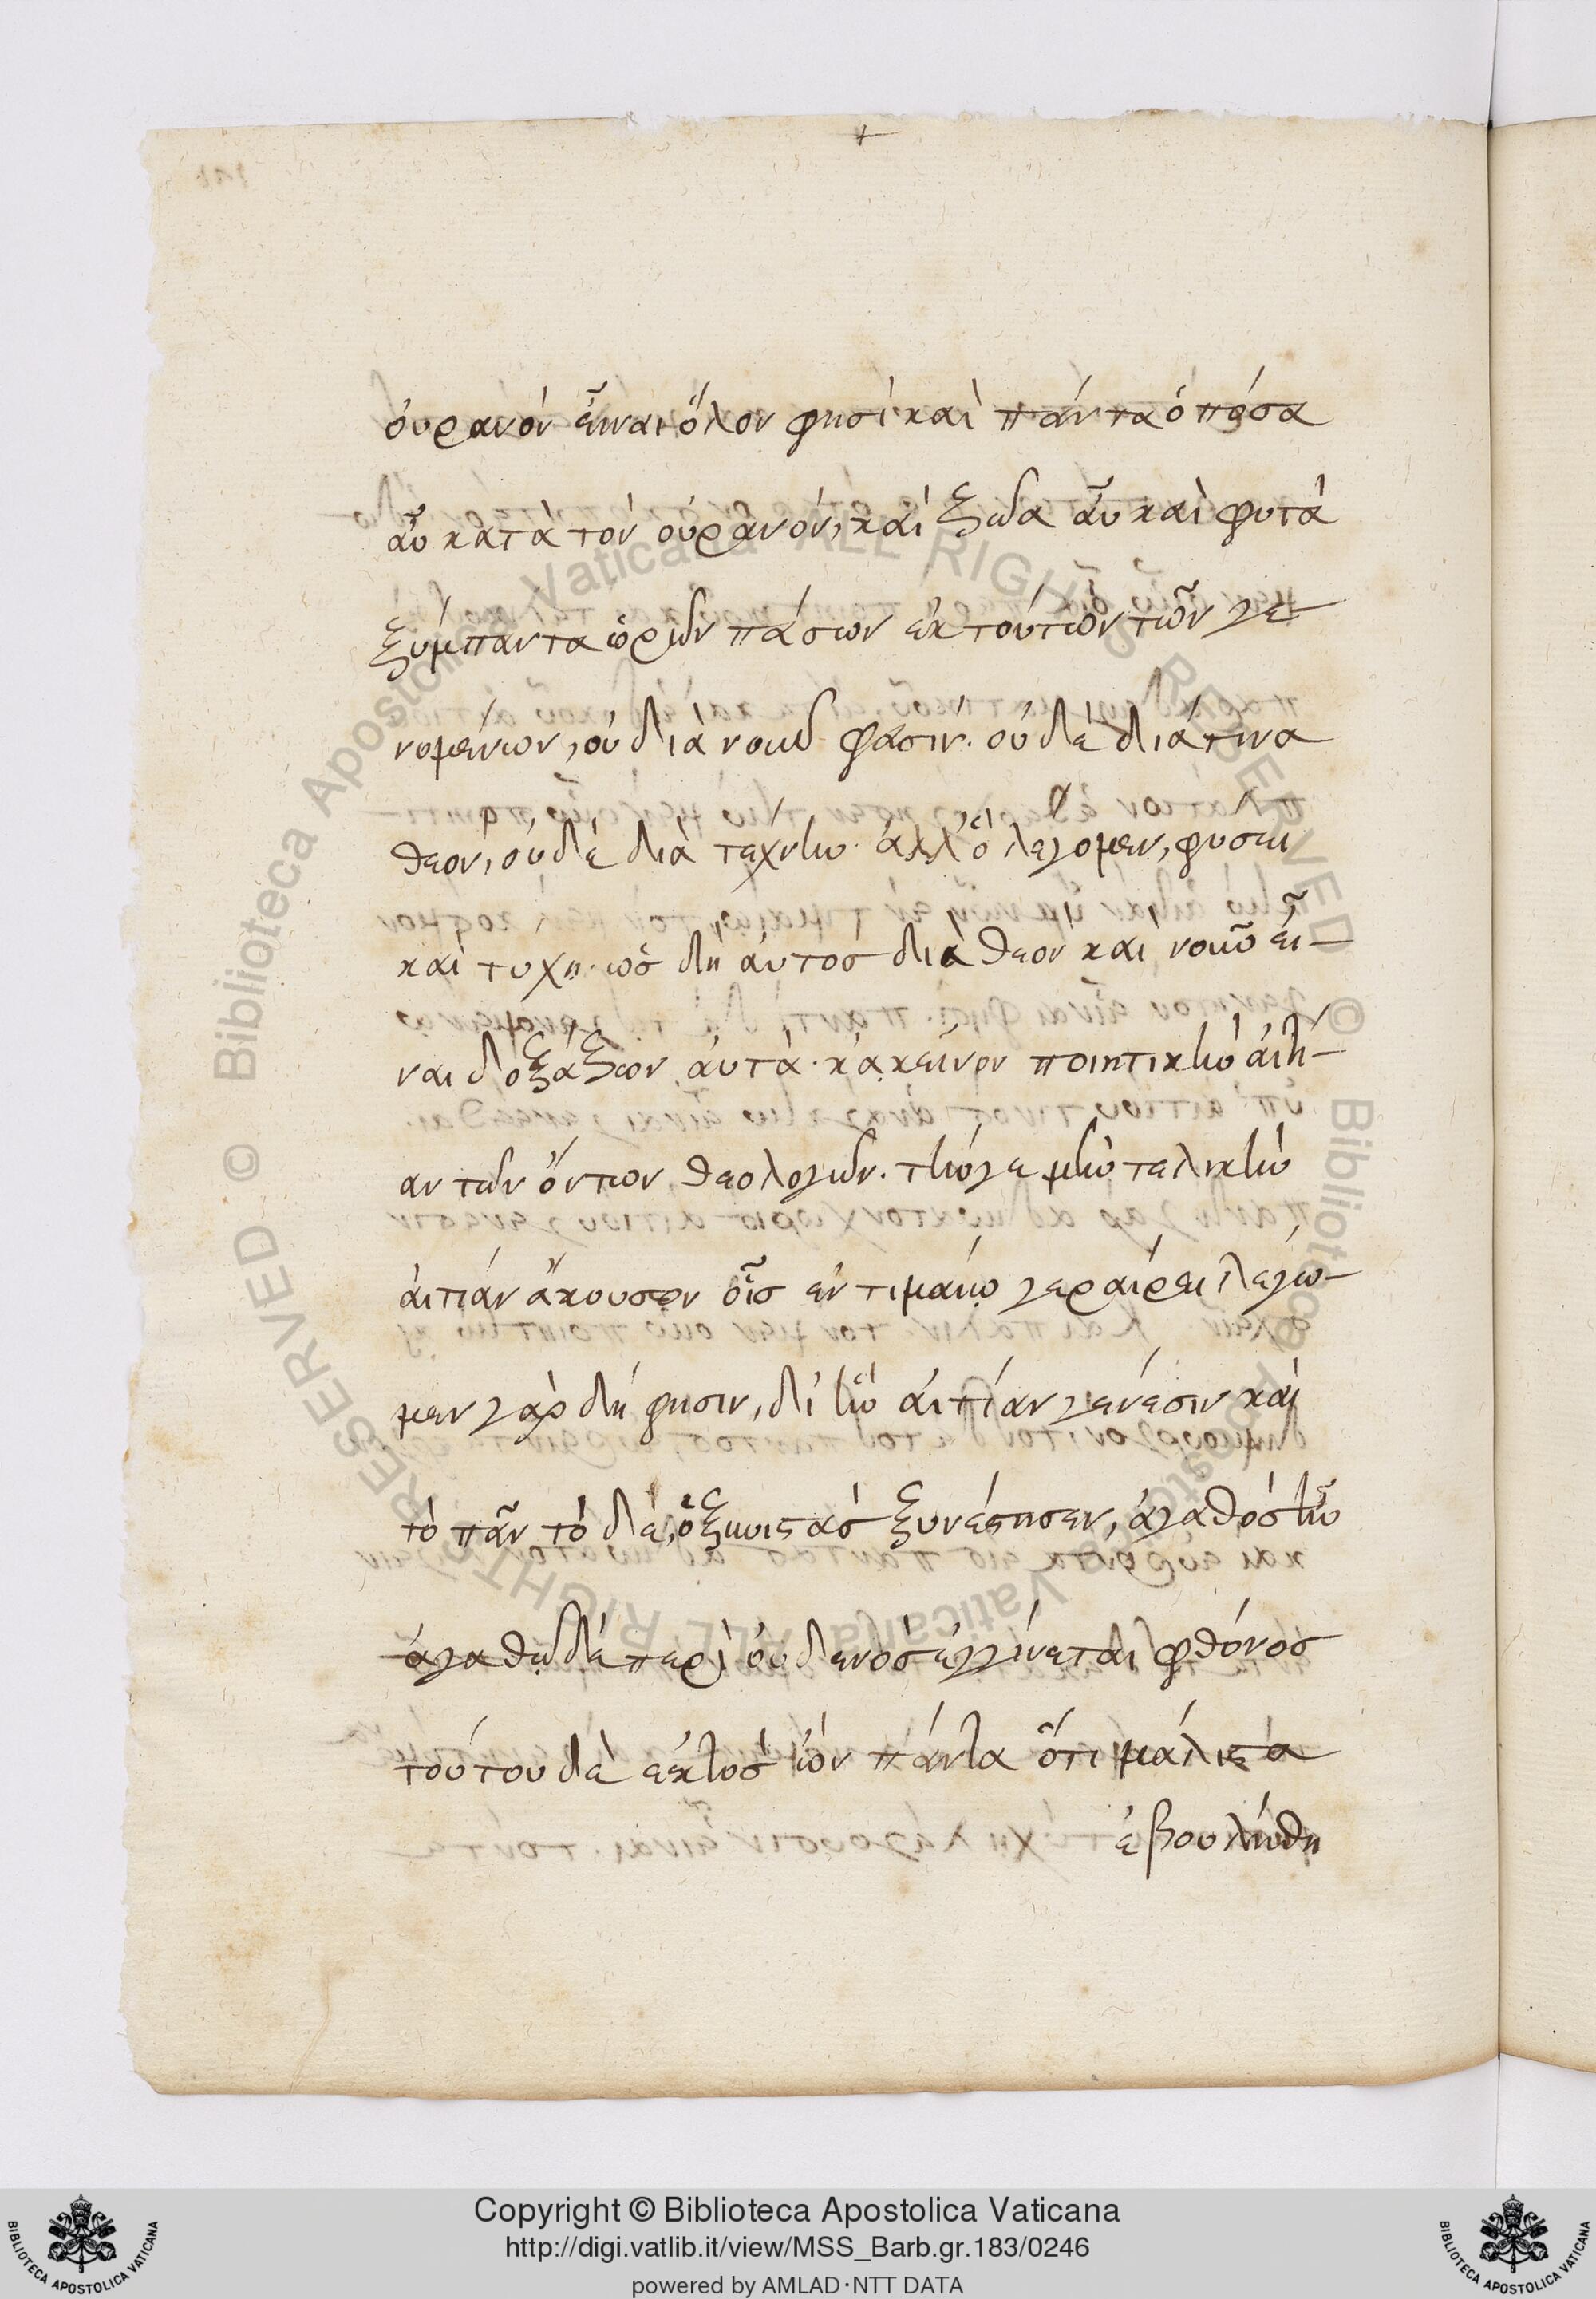 ὀυρανόν εἶναι ὅλον φησί καὶ πάντα ὁπόσα
αὖ κατὰ τὸν οὐρανόν, καὶ ζῶα αὖ καὶ φυτὰ
ξύμπαντα ὡρῶν πάσων ἐκ τούτων τῶν γε-
νομένων, οὐ διὰ νοῦ φάσιν. οὐδὲ διά τινα
θεον, οὐδὲ διὰ τέχνην. ἀλλ' ὃ λέγομεν, φυσει
καὶ τυχη. ὡς δὴ ἀυτοσ διὰ θεον καὶ νοῦν εἶ-
ναι δοξάζων ἀυτὰ. κακεῖνον ποιητικὴν ἀιτί-
αν τῶν ὄντων θεολογῶν. τὴν γε μὴν τελικὴν
ἀιτίαν ἄκουσον οἷσ ἐν τιμαίῳ γεραίρει λέγω-
μεν γὰρ δή φησιν, δι' ἣν ἀιτίαν γένεσιν καὶ
τὸ πᾶν τὸ δὲ, ὁ ξυνιστὰσ ξυνέστησεν, ἀγαθὸς ἦν
ἀγαθῷ δὲ περὶ ὀυδενόσ ἐγγίνεται φθόνοσ
τούτου δὲ ἐκτοσ ὢν πάντα ὅτι μάλιστα
ἐβουλήθη
Copyright © Biblioteca Apostolica Vaticana
http://digi.vatlib.it/view/MSS_Barb.gr.183/0246
powered by AMLAD·NTT DATA